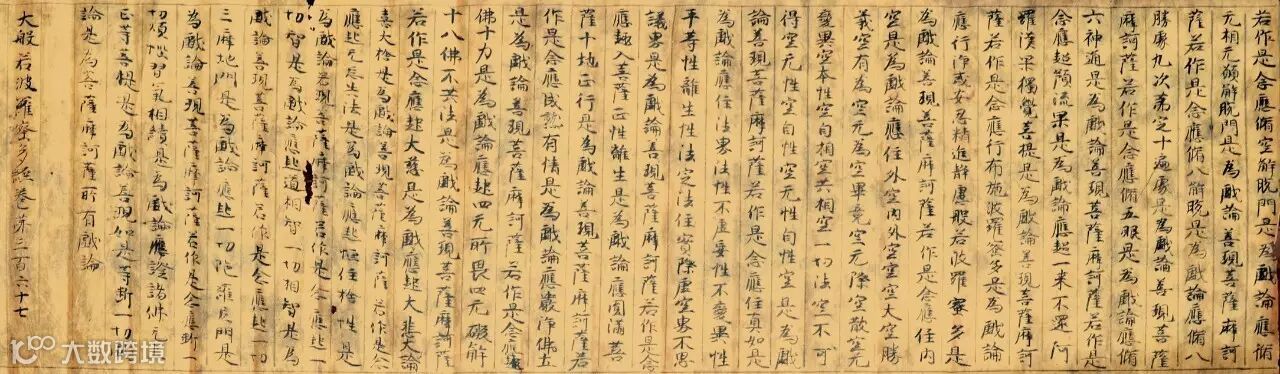 若作是念應脩空解脫門是為戲論應脩
无相无願解脫門是為戲論善現菩薩摩訶
薩若作是念應脩八解脫是為戲論應脩八
勝處九次第定十遍處是為戲論善現菩薩
摩訶薩若作是念應脩五眼是為戲論應脩
六神通是為戲論善現菩薩摩訶薩若作是
念應超預流果是為戲論應超一来不還阿
羅漢果獨覺菩提是為戲論善現菩薩摩訶
薩若作是念應行布施波羅蜜多是為戲論
應行淨戒安忍精進靜慮般若波羅蜜多是
為戲論善現菩薩摩訶薩若作是念應住內
空是為戲論應住外空內外空空空大空勝
義空有為空无為空畢竟空无際空散空无
變異空本性空自相空共相空一切法空不可
得空无性空自性空无性自性空是為戲
論善現菩薩摩訶薩若作是念應住真如是
為戲論應住法界法性不虛妄性不變異性
平等性離生性法定法住實際虛空界不思
議界是為戲論善現菩薩摩訶薩若作是念
應趣入菩薩正性離生是為戲論應圓滿菩
薩十地正行是為戲論善現菩薩摩訶薩若
作是念應成熟有情是為戲論應嚴淨佛土
是為戲論善現菩薩摩訶薩若作是念應
佛十力是為戲論應起四无所畏四无礙解
十八佛不共法是為戲論善現菩薩摩訶薩
若作是念應起大慈是為戲論應起大悲
喜大捨是為戲論善現菩薩摩訶薩若作是念
應起无忘失法是為戲論應起恒住捨性是
為戲論善現菩薩摩訶薩若作是念應起一
切智是為戲論應起道相智一切相智是為
戲論善現菩薩摩訶薩若作是念應起一切
三摩地門是為戲論應起一切陀羅尼門是
為戲論善現菩薩摩訶薩若作是念應斷一
切煩惱習氣相續是為戲論應證諸佛无上
正等菩提是為戲論善現如是等斷一切
論是為菩薩摩訶薩所有戲論
大般若波羅蜜多經卷第三百六十七
大数跨境